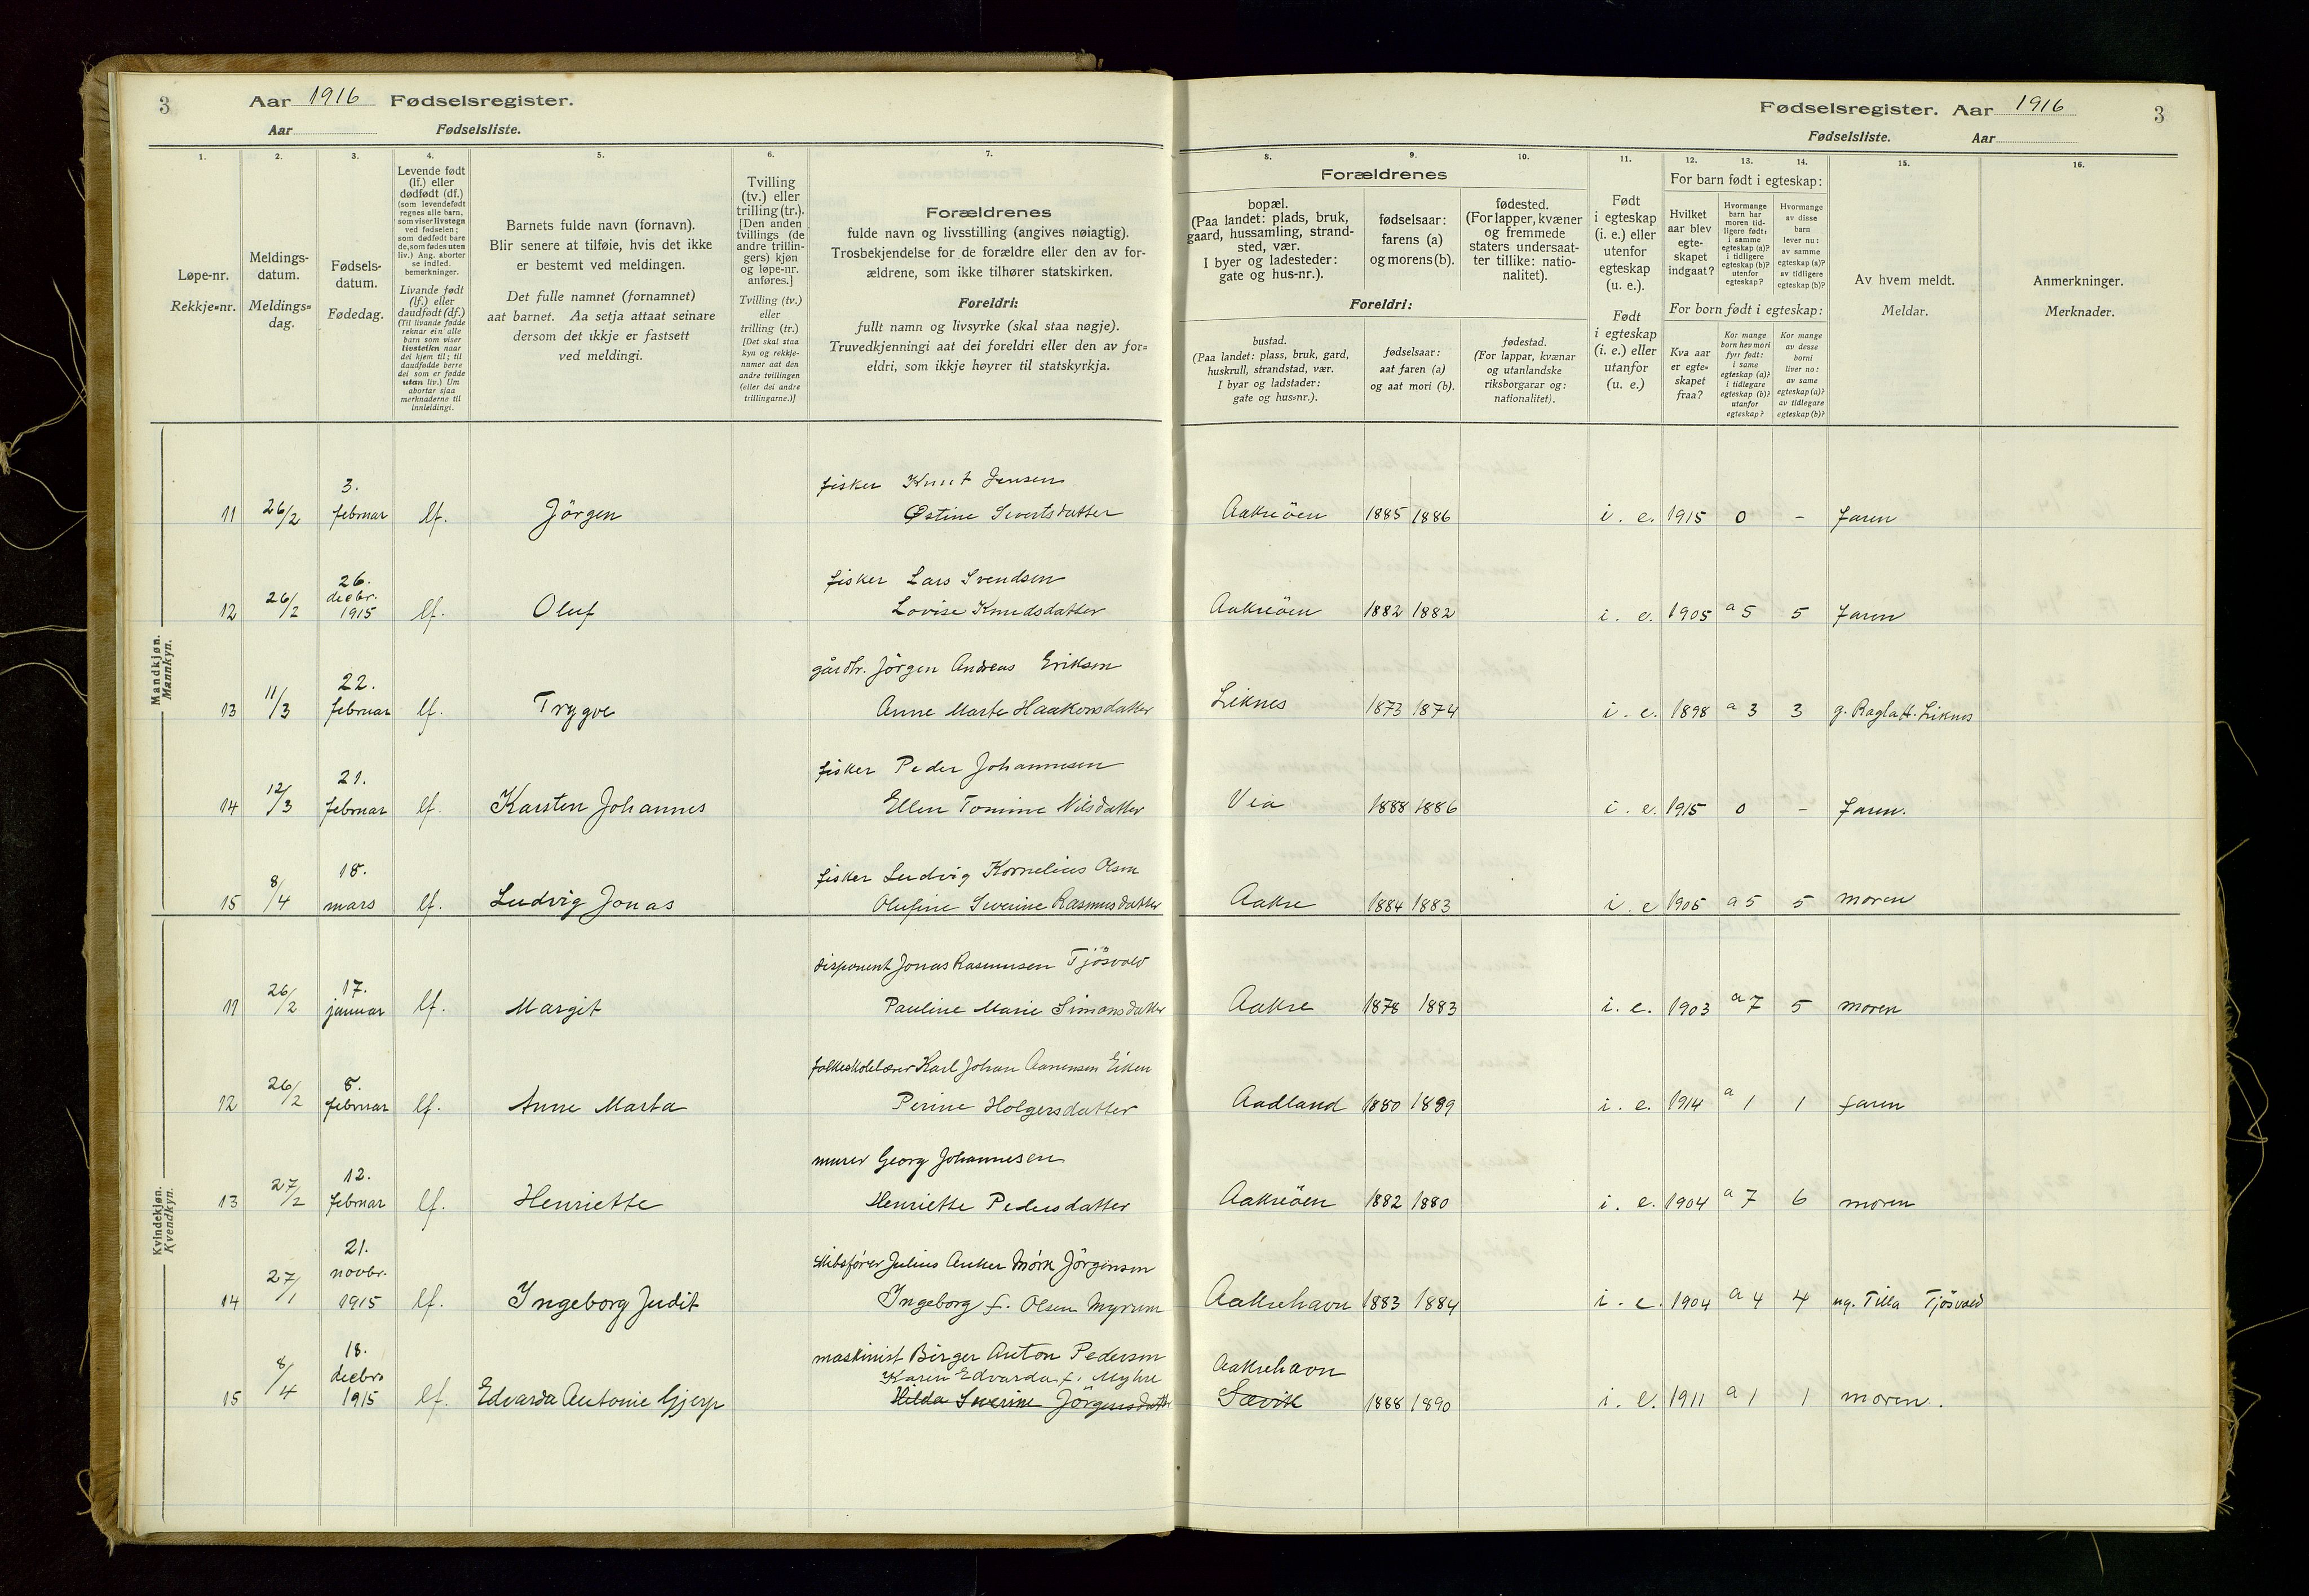 3
Aar 1916 Fødselsregister.
Aar Fødselsliste.
Fødselsregister. Aar 1916
3
Fødselsliste. Aar
1.
2.
3.
4.
5.
6.
7.
8.
9.
10.
11.
12.
13.
14.
15.
16.
Løpe-nr.
Rekkje=nr.
Meldings-
datum.
Meldings=
dag.
Fødsels-
datum.
Fødedag.
Levende født
(lf.) eller
dødfødt (df.)
(som levendefødt
regnes alle barn,
som viser livstegn
ved fødselen;
som dødfødt bare
de, som fødes uten
liv.) Ang. aborter
se indled.
bemerkninger.
Livande født
(lf.) eller
daudfødt (df.)
(Til livande fødde
reknar ein alle
barn som viser
livsteikn naar
dei kjem til; til
daudfødde berre
dei som er fødde
utan liv.) Um
abortar sjaa
merknaderne til
innleidingi.
Barnets fulde navn (fornavn).
Blir senere at tilføie, hvis det ikke
er bestemt ved meldingen.
Det fulle namnet (fornamnet)
aat barnet. Aa setja attaat seinare
dersom det ikkje er fastsett
ved meldingi.
Tvilling
(tv.) eller
trilling (tr.).
[Den anden
tvillings (de
andre trillin-
gers) kjøn
og løpe-nr.
anføres.]
Tvilling (tv.)
eller
trilling (tr.)
[Det skal staa
kyn og rekkje-
numer aat den
andre tvillingen
(eller dei andre
trillingarne.)]
Forældrenes
fulde navn og livsstilling (angives nøiagtig).
Trosbekjendelse for de forældre eller den av for-
ældrene, som ikke tilhører statskirken.
Foreldri:
fullt namn og livsyrke (skal staa nøgje).
Truvedkjenningi aat dei foreldri eller den av for=
eldri, som ikkje høyrer til statskyrkja.
Forældrenes
bopæl.
(Paa landet: plads, bruk,
gaard, hussamling, strand-
sted, vær.
I byer og ladesteder:
gate og hus-nr.).
fødselsaar:
farens (a)
og morens (b).
fødested.
(For lapper, kvæner
og fremmede
staters undersaat-
ter tillike: natio-
nalitet).
Foreldri:
bustad.
(Paa landet: plass, bruk, gard,
huskrull, strandstad, vær.
I byar og ladstader:
gate og hus=nr.).
fødselsaar:
aat faren (a)
og aat mori (b).
fødestad.
(For lappar, kvænar
og utanlandske
riksborgarar og:
nationalitet).
Født
i egteskap
(i. e.) eller
utenfor
egteskap
(u. e.).
Født
i egteskap
(i. e.) eller
utanfor
(u. e.)
For barn født i egteskap:
Hvilket
aar blev
egte-
skapet
indgaat?
Hvormange
barn har
moren tid-
ligere født:
i samme
egteskap (a)?
i tidligere
egteskap (b)?
utenfor
egteskap?
Hvormange
av disse
barn
lever nu:
av samme
egteskap (a)?
av tidligere
egteskap (b)?
For born født i egteskap:
Kva aar
er egte=
skapet
fraa?
Kor mange
born hev mori
fyrr født:
i same
egteskap (a)?
i tidlegare
egteskap (b)?
utanfor
egteskap?
Kor mange
av desse
borni
liver no:
av same
egteskap (a)?
av tidlegare
egteskap (b)?
Av hvem meldt.
Meldar.
Anmerkninger.
Merknader.
Mandkjøn.
Mannkyn.
3. fisker Knut Jensen
11 26/2 februar lf. Jörgen Østine Sivertsdatter Aakreöen 1885 1886 i. e. 1915 0 - Faren
26. fisker Lars Svendsen
decbr.
12 26/2 1915 lf. Oluf Lovise Knudsdatter Aakreöen 1882 1882 i. e. 1905 a 5 5 Faren
22. gårdbr. Jörgen Andreas Eriksen
13 11/3 februar lf. Trygve Anne Marte Haakonsdatter Liknes 1873 1874 i. e. 1898 a 3 3 g. Liknes
21. fisker Peder Johannesen
14 12/3 februar lf. Karsten Johannes Ellen Tomine Nilsdatter Vea 1888 1886 i. e. 1915 0 - Faren.
18. fisker Ludvig Kornelius Olsen
15 8/4 mars lf. Ludvig Jonas Olufine Severine Rasmusdatter Aakre 1884 1883 i. e 1905 a 5 5 moren
Kvindekjøn.
Kvendkyn.
17. disponent Jonas Rasmussen Tjösvold
11 26/2 januar lf. Margit Pauline Marie Simonsdatter Aakre 1878 1883 i. e. 1903 a 7 5 moren
8. folkeskolelærer Karl Johan Aanensen Eiken
12 26/2 februar lf. Anne Marta Perine Holgersdatter Aadland 1880 1889 i. e. 1914 a 1 1 faren
12. murer Georg Johannesen
13 27/2 februar lf. Henriette Henriette Pedersdatter Aakreöen 1882 1880 i. e. 1904 a 7 6 moren
21. skibsfører Julius Anker Mörk Jörgensen
novbr.
14 27/1 1915 lf. Ingeborg Judit Ingeborg f. Olsen Myrum Aakrehavn 1883 1884 i. e. 1904 a 4 4 ug. Tilla Tjösvold
18. maskinist Birger Anton Pedersen Aakrehavn
decbr Karen Edvarda f. Myhre
15 8/4 1915 lf. Edvarda Antonie Gjerp Hilda Severine Jörgensdatter Sævik 1888 1890 i. e. 1911 a 1 1 moren.